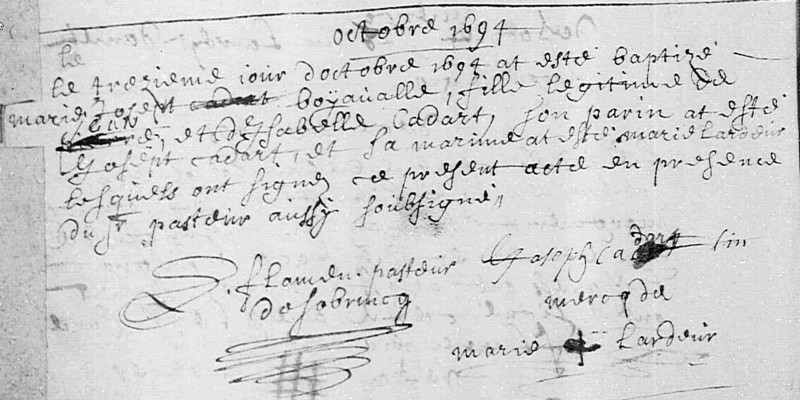 octobre 1694
le
Le trezieme iour d'octobre 1694 at esté baptizé
marie Josept cadart boyaualle, fille legitime de
Jean et d'Jsabelle Cadart, son parin at esté
Josept cadart, et sa marine at esté marie Lardeur
Lesquels ont signez ce present acte en presence
du Sr pasteur aussy soubsigné,
flamen pasteur
Joseph Cadart
mercq de
marie + Lardeur